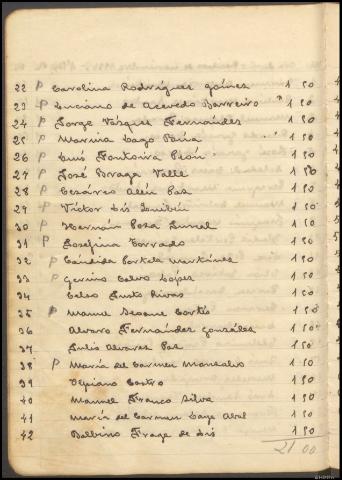 22 P Carolina Rodríguez Goines 1 50
23 P Luciano de Acevedo Barreiro " 1 50
24 P Jorge Vázquez Fernández 1 50
25 P Marina Lago 1 50
26 P Luis Fontoira Peón 1 50
27 P José Braga Valle 1 50
28 P Cesáreo Alén Paz 1 50
29 P Víctor Lis 1 50
30 P Hernán Poza 1 50
31 P Josefina Torrado 1 50
32 P Cándida Portela Martínez 1 50
33 P Genino Calvo López 1 50
34 Celso Justo Rivas 1 50
35 P Manuel Seoane Cortés 1 50
36 Alvaro Fernández González 1 50
37 Julio Alvarez Paz 1 50
38 P María del Carmen Monsalvo 1 50
39 Ulpiano Castro 1 50
40 Manuel Franco Silva 1 50
41 María del Carmen Laya Abal 1 50
42 Balbino Fraga de Lis 1 50
21 00